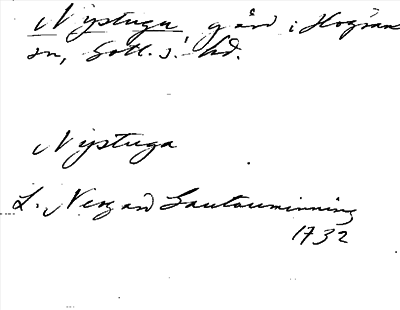 Nystuga, gård i Hogrän
sn, Gotl. s. hd.
Nystuga
L. Neogard Gautauminning
1732